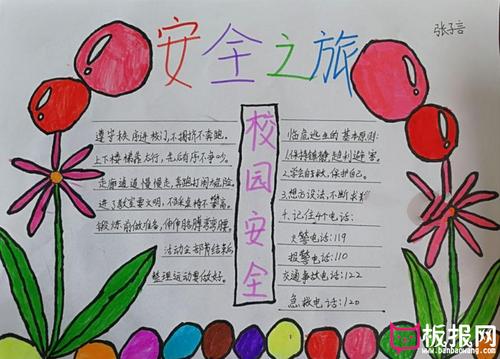 张子言
安全之旅
遵守校序进校门,不拥挤不奔跑。
上下楼梯靠右行,先后有序不争吵。
走廊通道慢慢走,奔跑打闹有危险。
进了教室要文明,不碰桌椅不攀高。
锻炼前做准备,伸伸胳膊弯弯腰。
活动全部有结束后
整理运动要做好。
校园安全
临危逃生的基本原则:
1.保持镇静,趋利避害。
2.学会自救,保护自己。
3.想方设法,不断求救
4.记住4个电话:
火警电话:119
报警电话:110
交通事故电话:122
急救电话:120
板报网
www.banbaowang.com